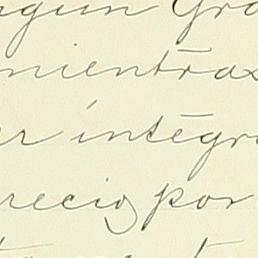 ngun Gra
mientras
er integra
recio, por